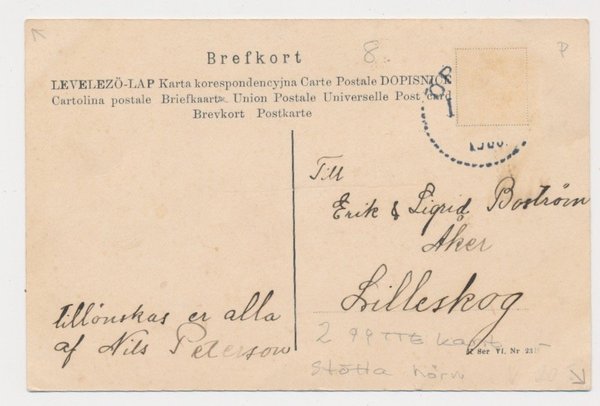 8.
P
Brefkort
LEVELEZŐ-LAP Karta korespondencyjna Carte Postale DOPISNICE
Cartolina postale Briefkaart. Union Postale Universelle Post card
Brevkort Postkarte
Till
Erik & Sigrid Boström
Åker
Lilleskog
tillönskas er alla
af Nils Peterson
2
Ser VI. Nr
Stötta hörn